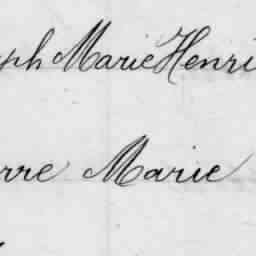 eph Marie Henri
erre Marie